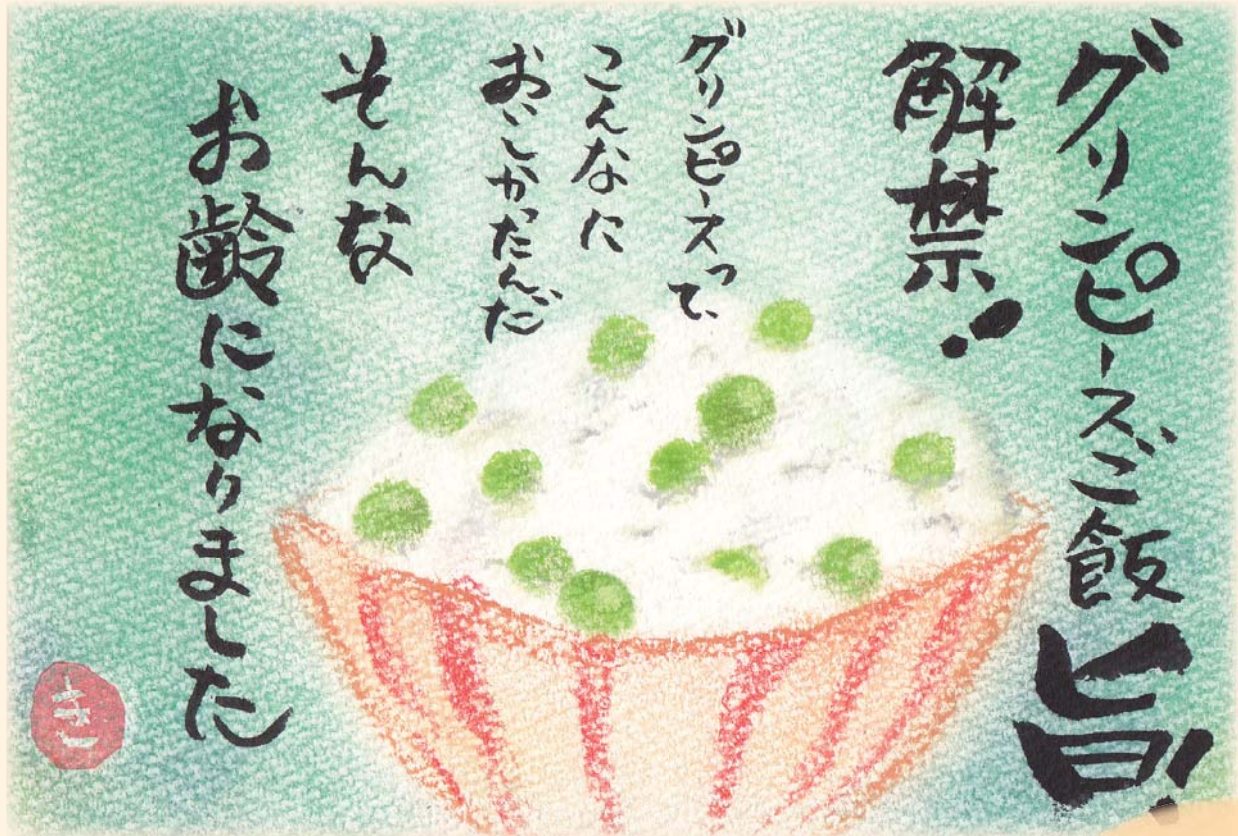 グリンピースご飯旨!
解禁!
グリンピースって、
こんなに
おいしかったんだ
そんな
お齢になりました
き